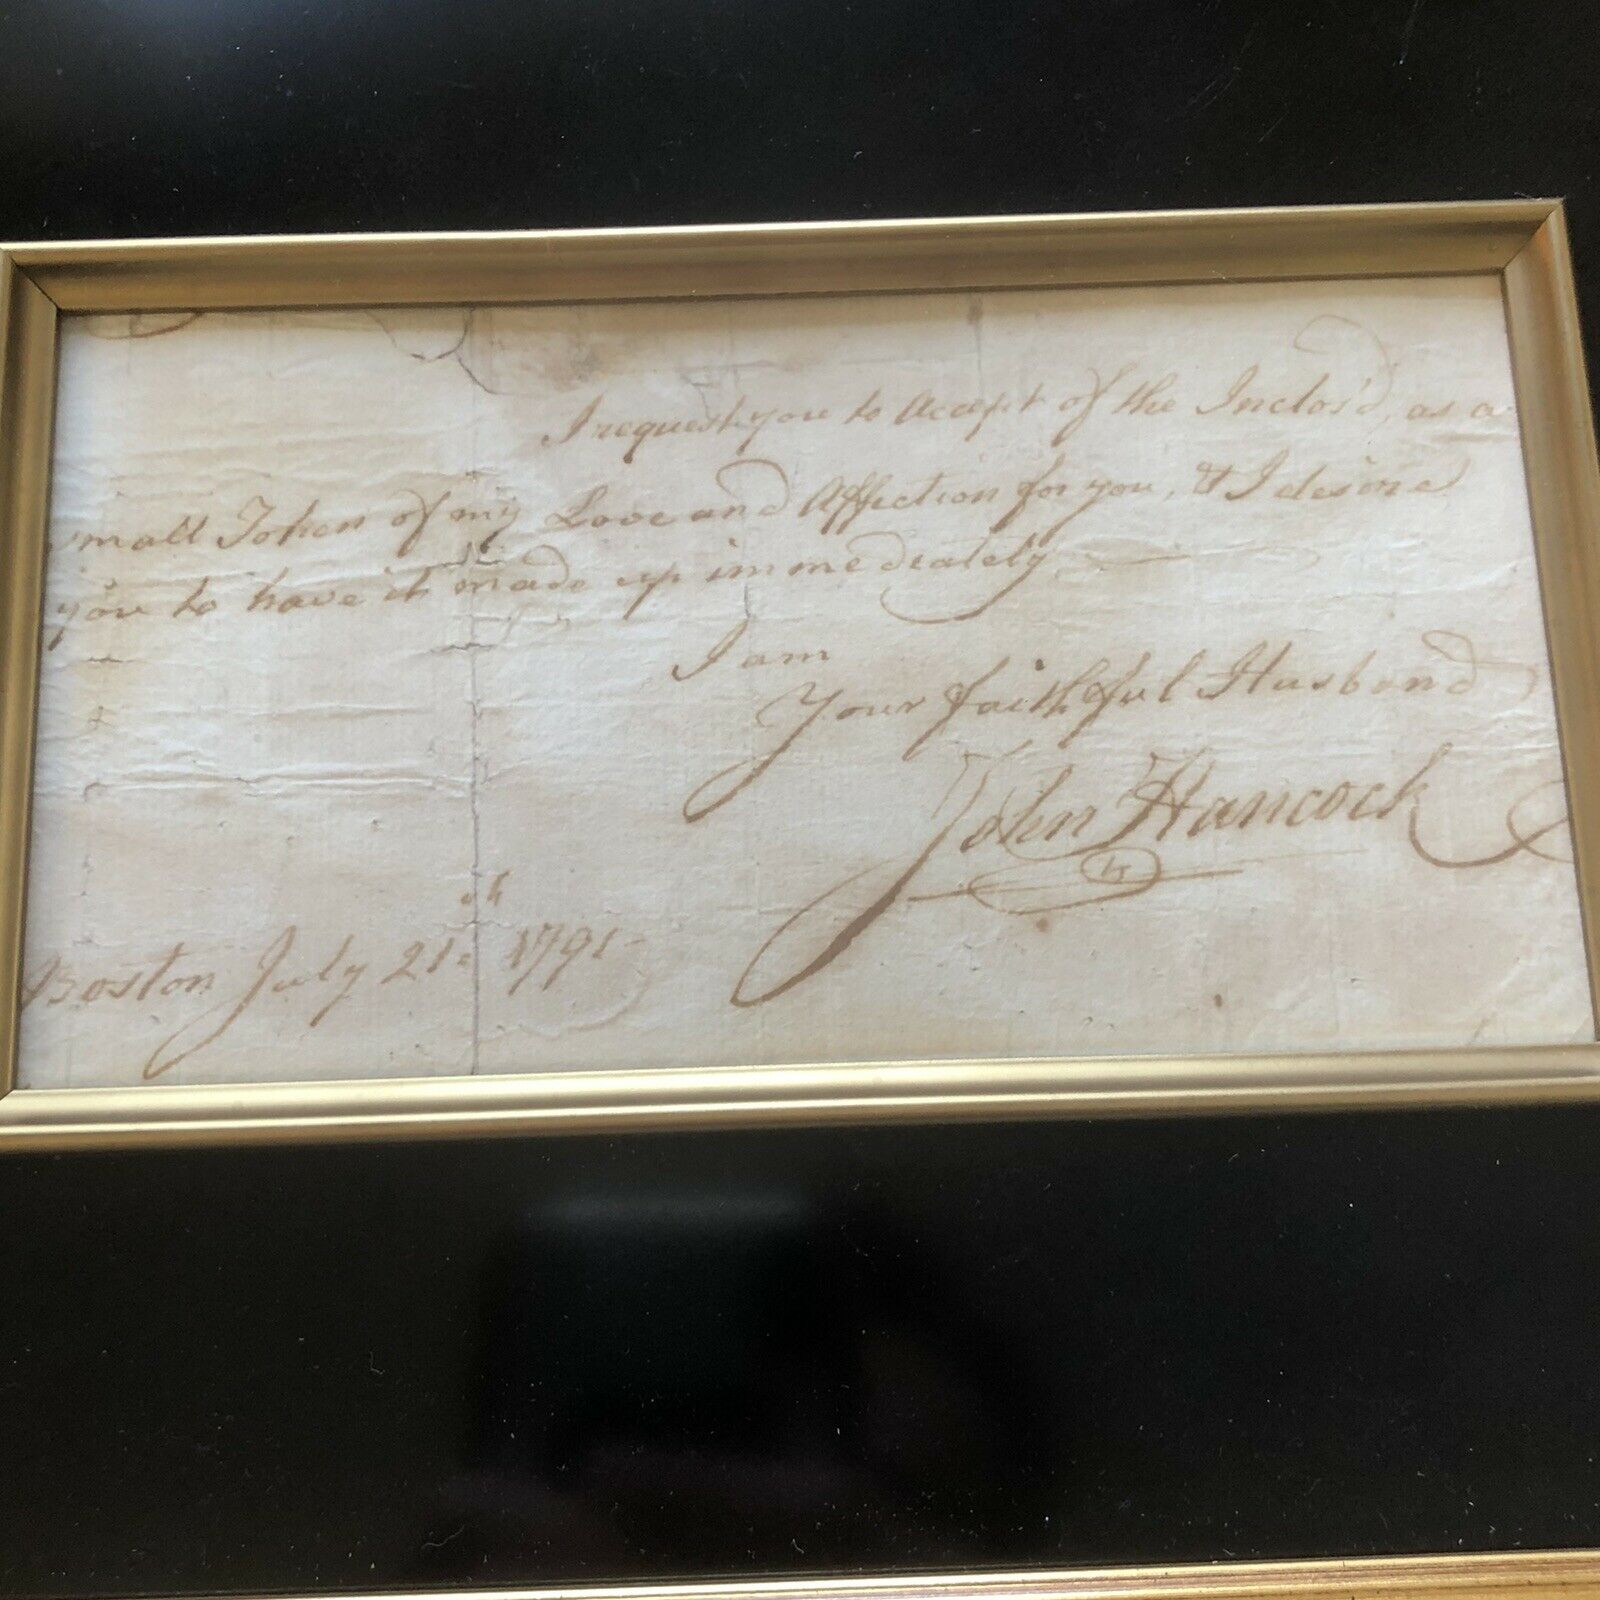 I request you to Accept of the Inclos'd, as a
small Token of my Love and Affection for you, & I desire
you to have it made up immediately
I am
Your faithful Husband
John Hancock
Boston July 21st 1791